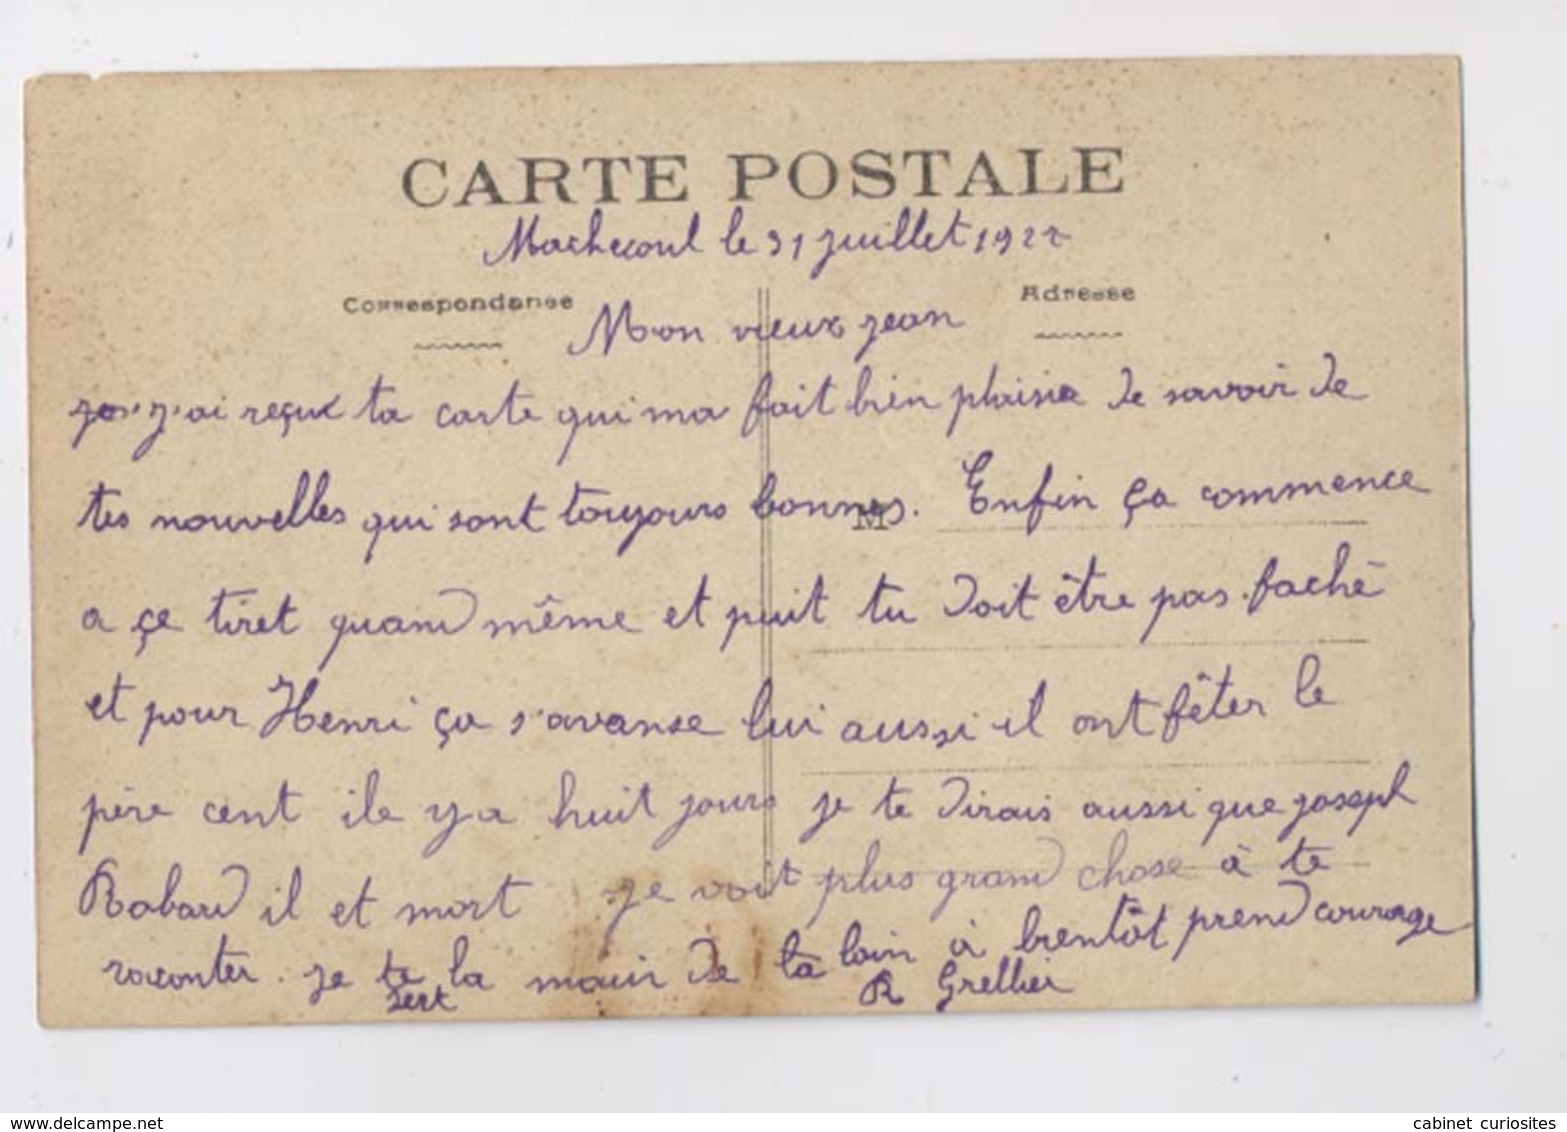 CARTE POSTALE
Machecoul le 31 juillet 1922
Correspondance
Adresse
Mon vieux jean
j'ai reçux ta carte qui ma fait bien plaisir de savoir de
tes nouvelles qui sont toujours bonnes. Enfin ça commence
M
a çe tiret quand même et puit tu doit être pas faché
et pour Henri ça s'avanse lui aussi il ont fêter le
père cent ile y a huit jours je te dirais aussi que joseph
Rabaud il et mort je voit plus grand chose à te
raconter. je te la main de la loin à bientôt prend courage
sert
R Grellier
www.delcampe.net
cabinet curiosites